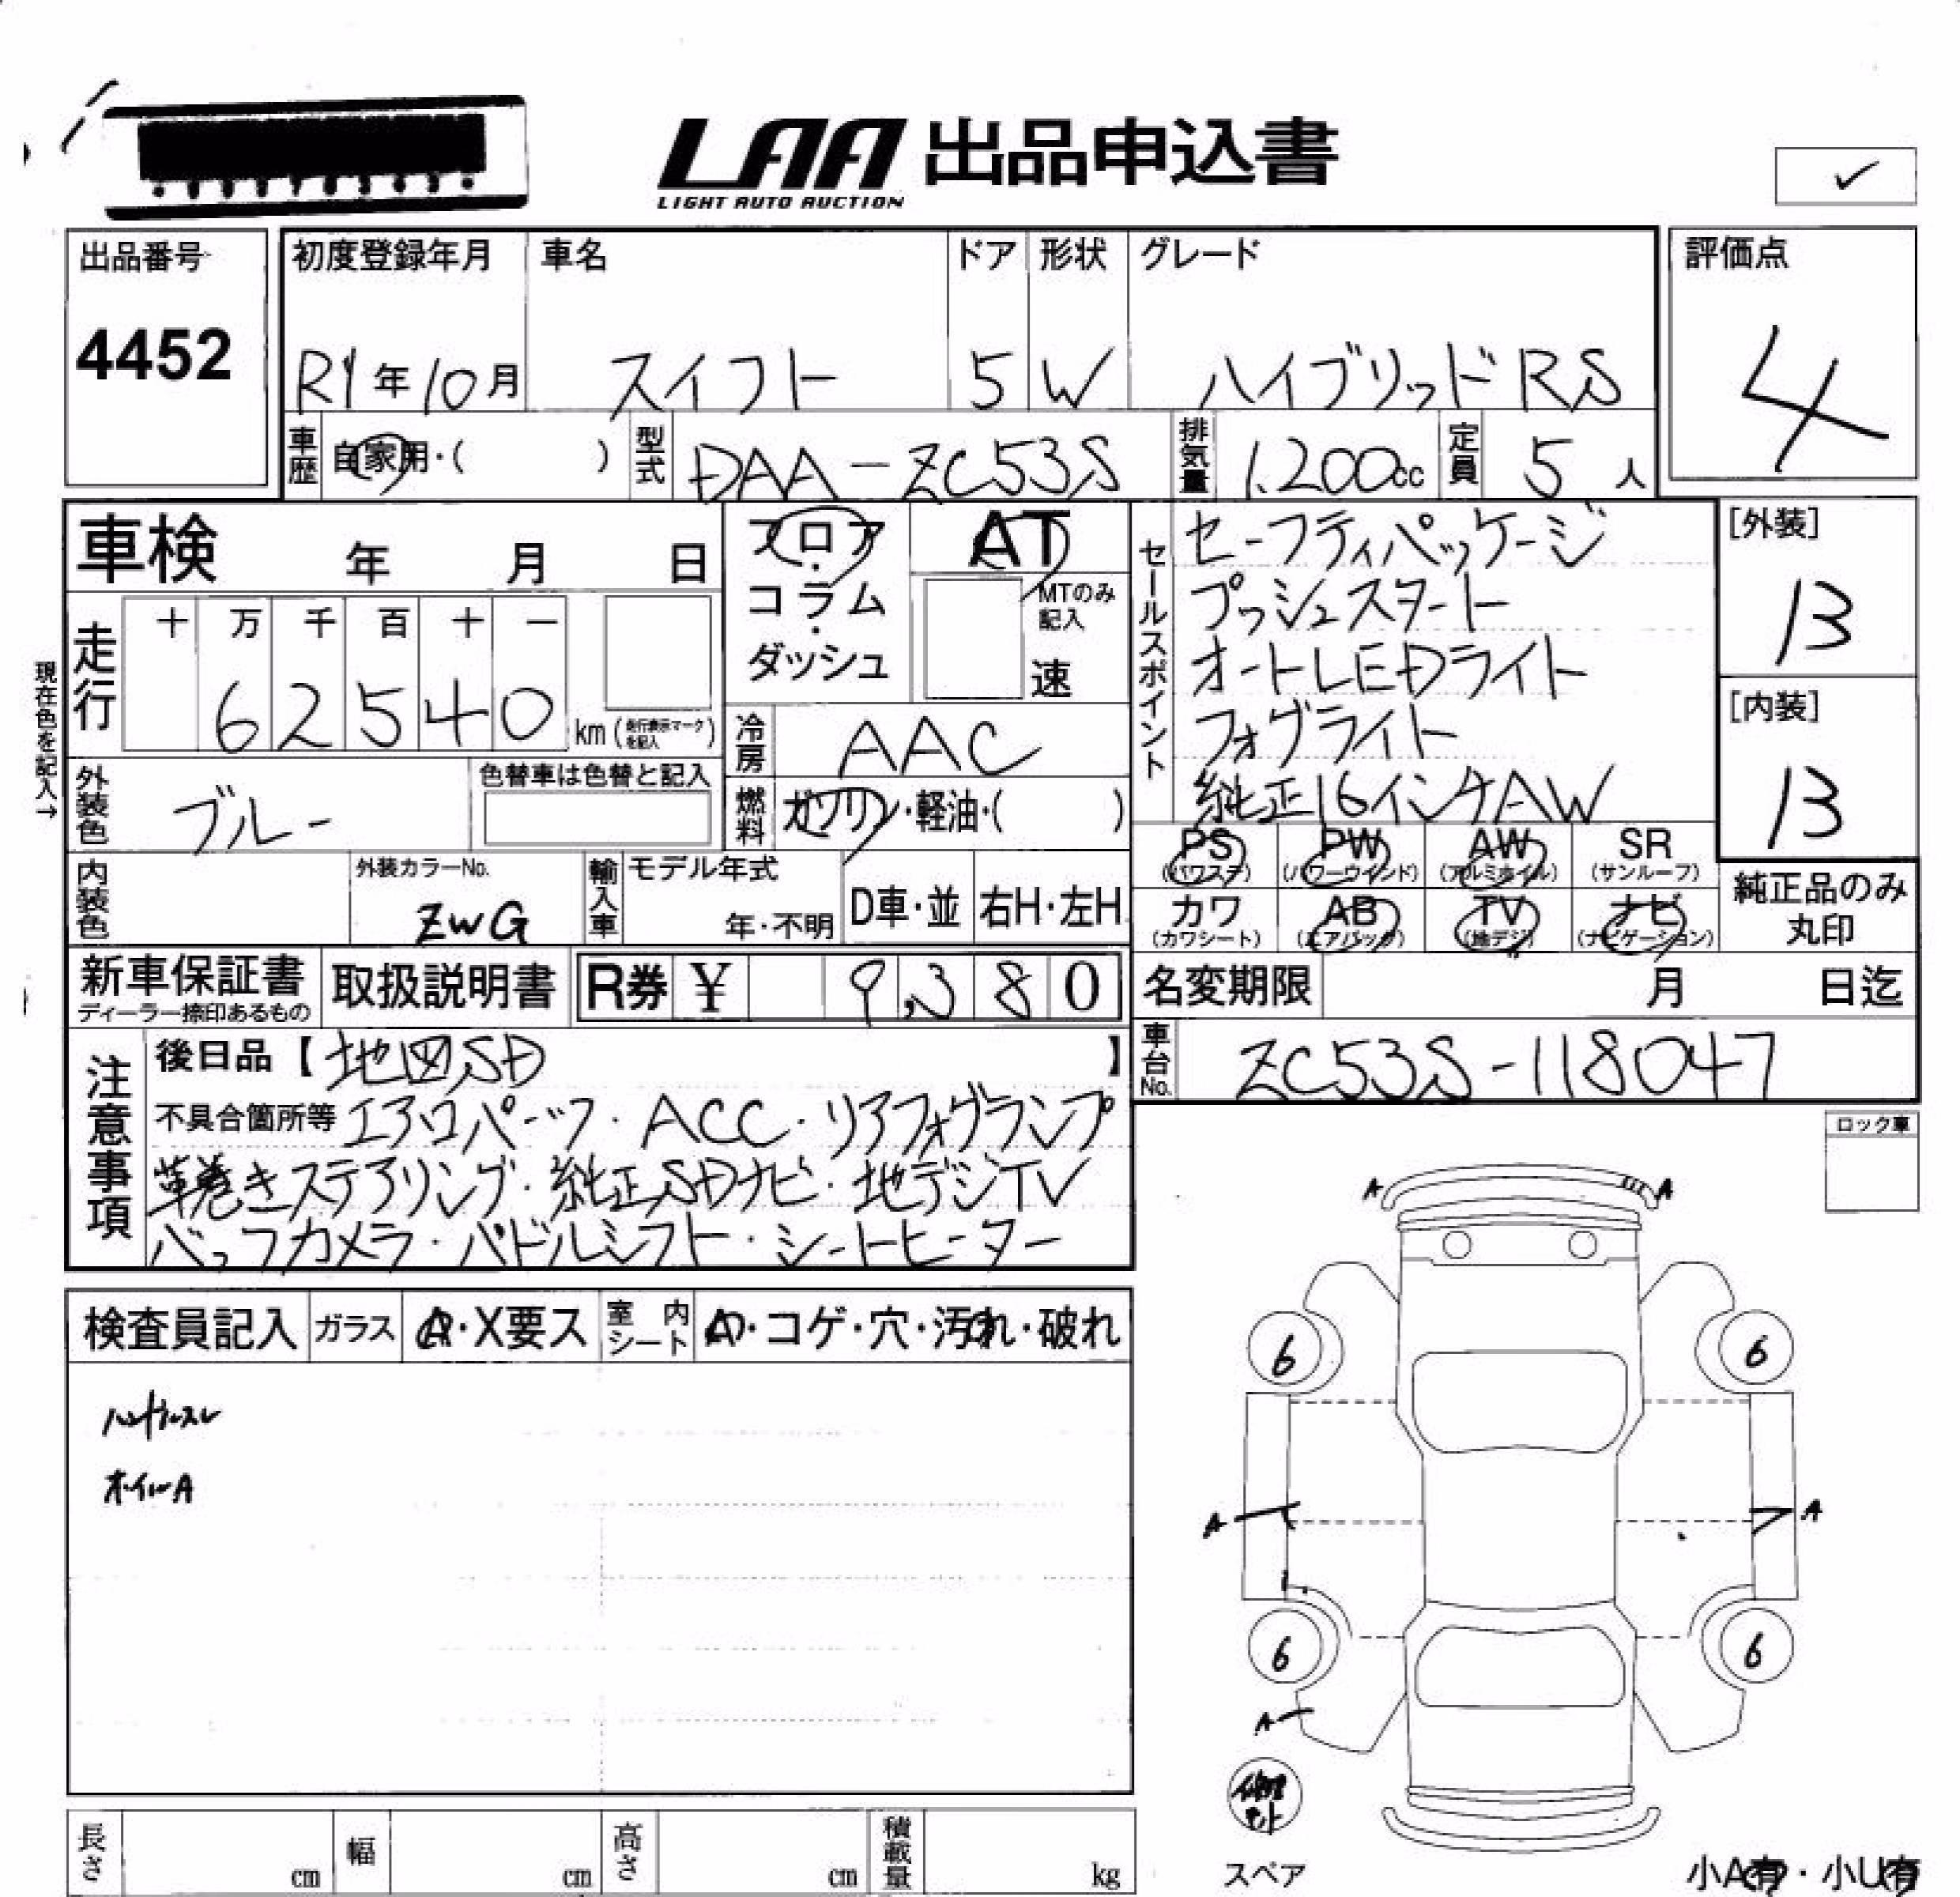 LAA 出品申込書
LIGHT AUTO AUCTION
✓
出品番号 初度登録年月 車名 ドア 形状 グレード 評価点
4452 R1年10月 スイフト 5 W ハイブリッドRS 4
車歴 自家用・( ) 型式 DAA-ZC53S 排気量 1.200cc 定員 5人
車検 年 月 日
フロア・コラム・ダッシュ
AT
MTのみ記入
速
セールスポイント
セーフティパッケージ
プッシュスタート
オートLEDライト
フォグライト
純正16インチAW
[外装]
13
[内装]
13
走行 十 万 千 百 十 一
62540 km(走行表示マークを記入)
現在色を記入→
冷房 AAC
外装色 ブルー 色替車は色替と記入
燃料 ガソリン・軽油・( )
PS (パワステ) PW (パワーウインド) AW (アルミホイル) SR (サンルーフ)
カワ (カワシート) AB (エアバック) TV (地デジ) ナビ (ナビゲーション)
純正品のみ丸印
内装色 外装カラーNo. ZWG 輸入車 モデル年式 年・不明 D車・並 右H・左H
新車保証書 ディーラー捺印あるもの 取扱説明書 R券 ¥ 9,380
名変期限 月 日迄
車台No. ZC53S-118047
注意事項
後日品【地図SD】
不具合箇所等 エアロパーツ・ACC・リアフォグランプ
革巻きステアリング・純正SDナビ・地デジTV
バックカメラ・パドルシフト・シートヒーター
ロック車
検査員記入 ガラス A・X要ス 室内シート A・コゲ・穴・汚れ・破れ
ハンドルスレ
ホイルA
A A
6 6
A A
6 6
A
修理キット
スペア
小A有・小U有
長さ cm 幅 cm 高さ cm 積載量 kg